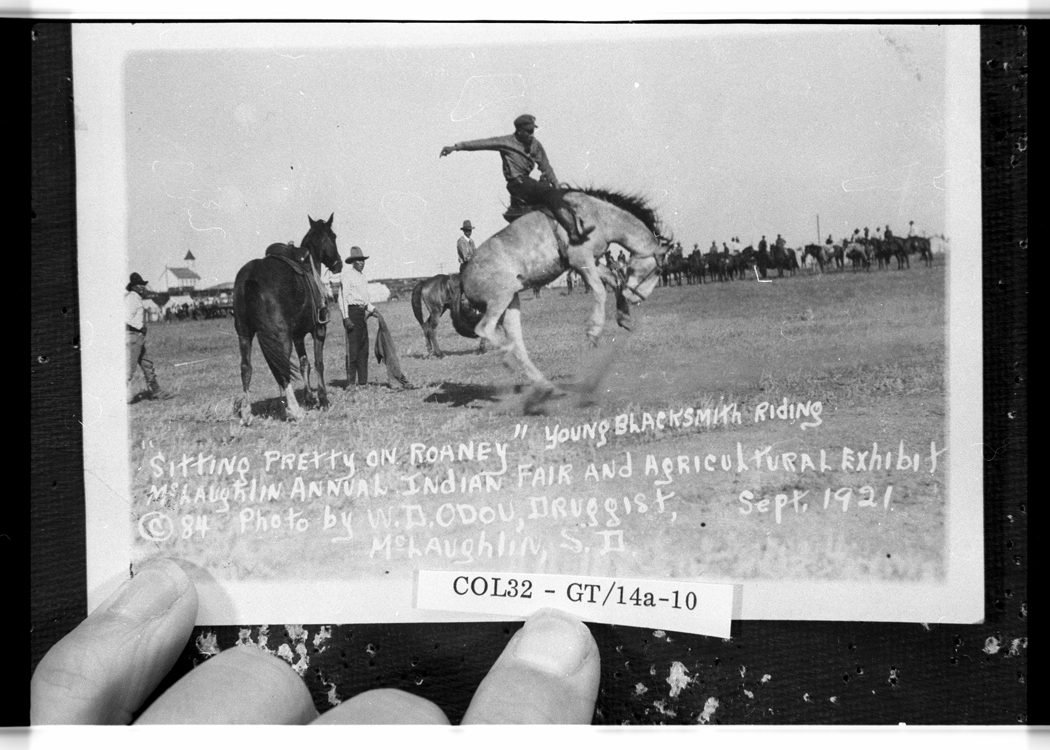 "Sitting Pretty on Roaney" Young Blacksmith Riding
McLaughlin Annual Indian Fair and Agricultural Exhibit
© 84 Photo by W.D. Odou, Druggist, Sept. 1921.
McLaughlin, S.D.
COL32 - GT/14a-10